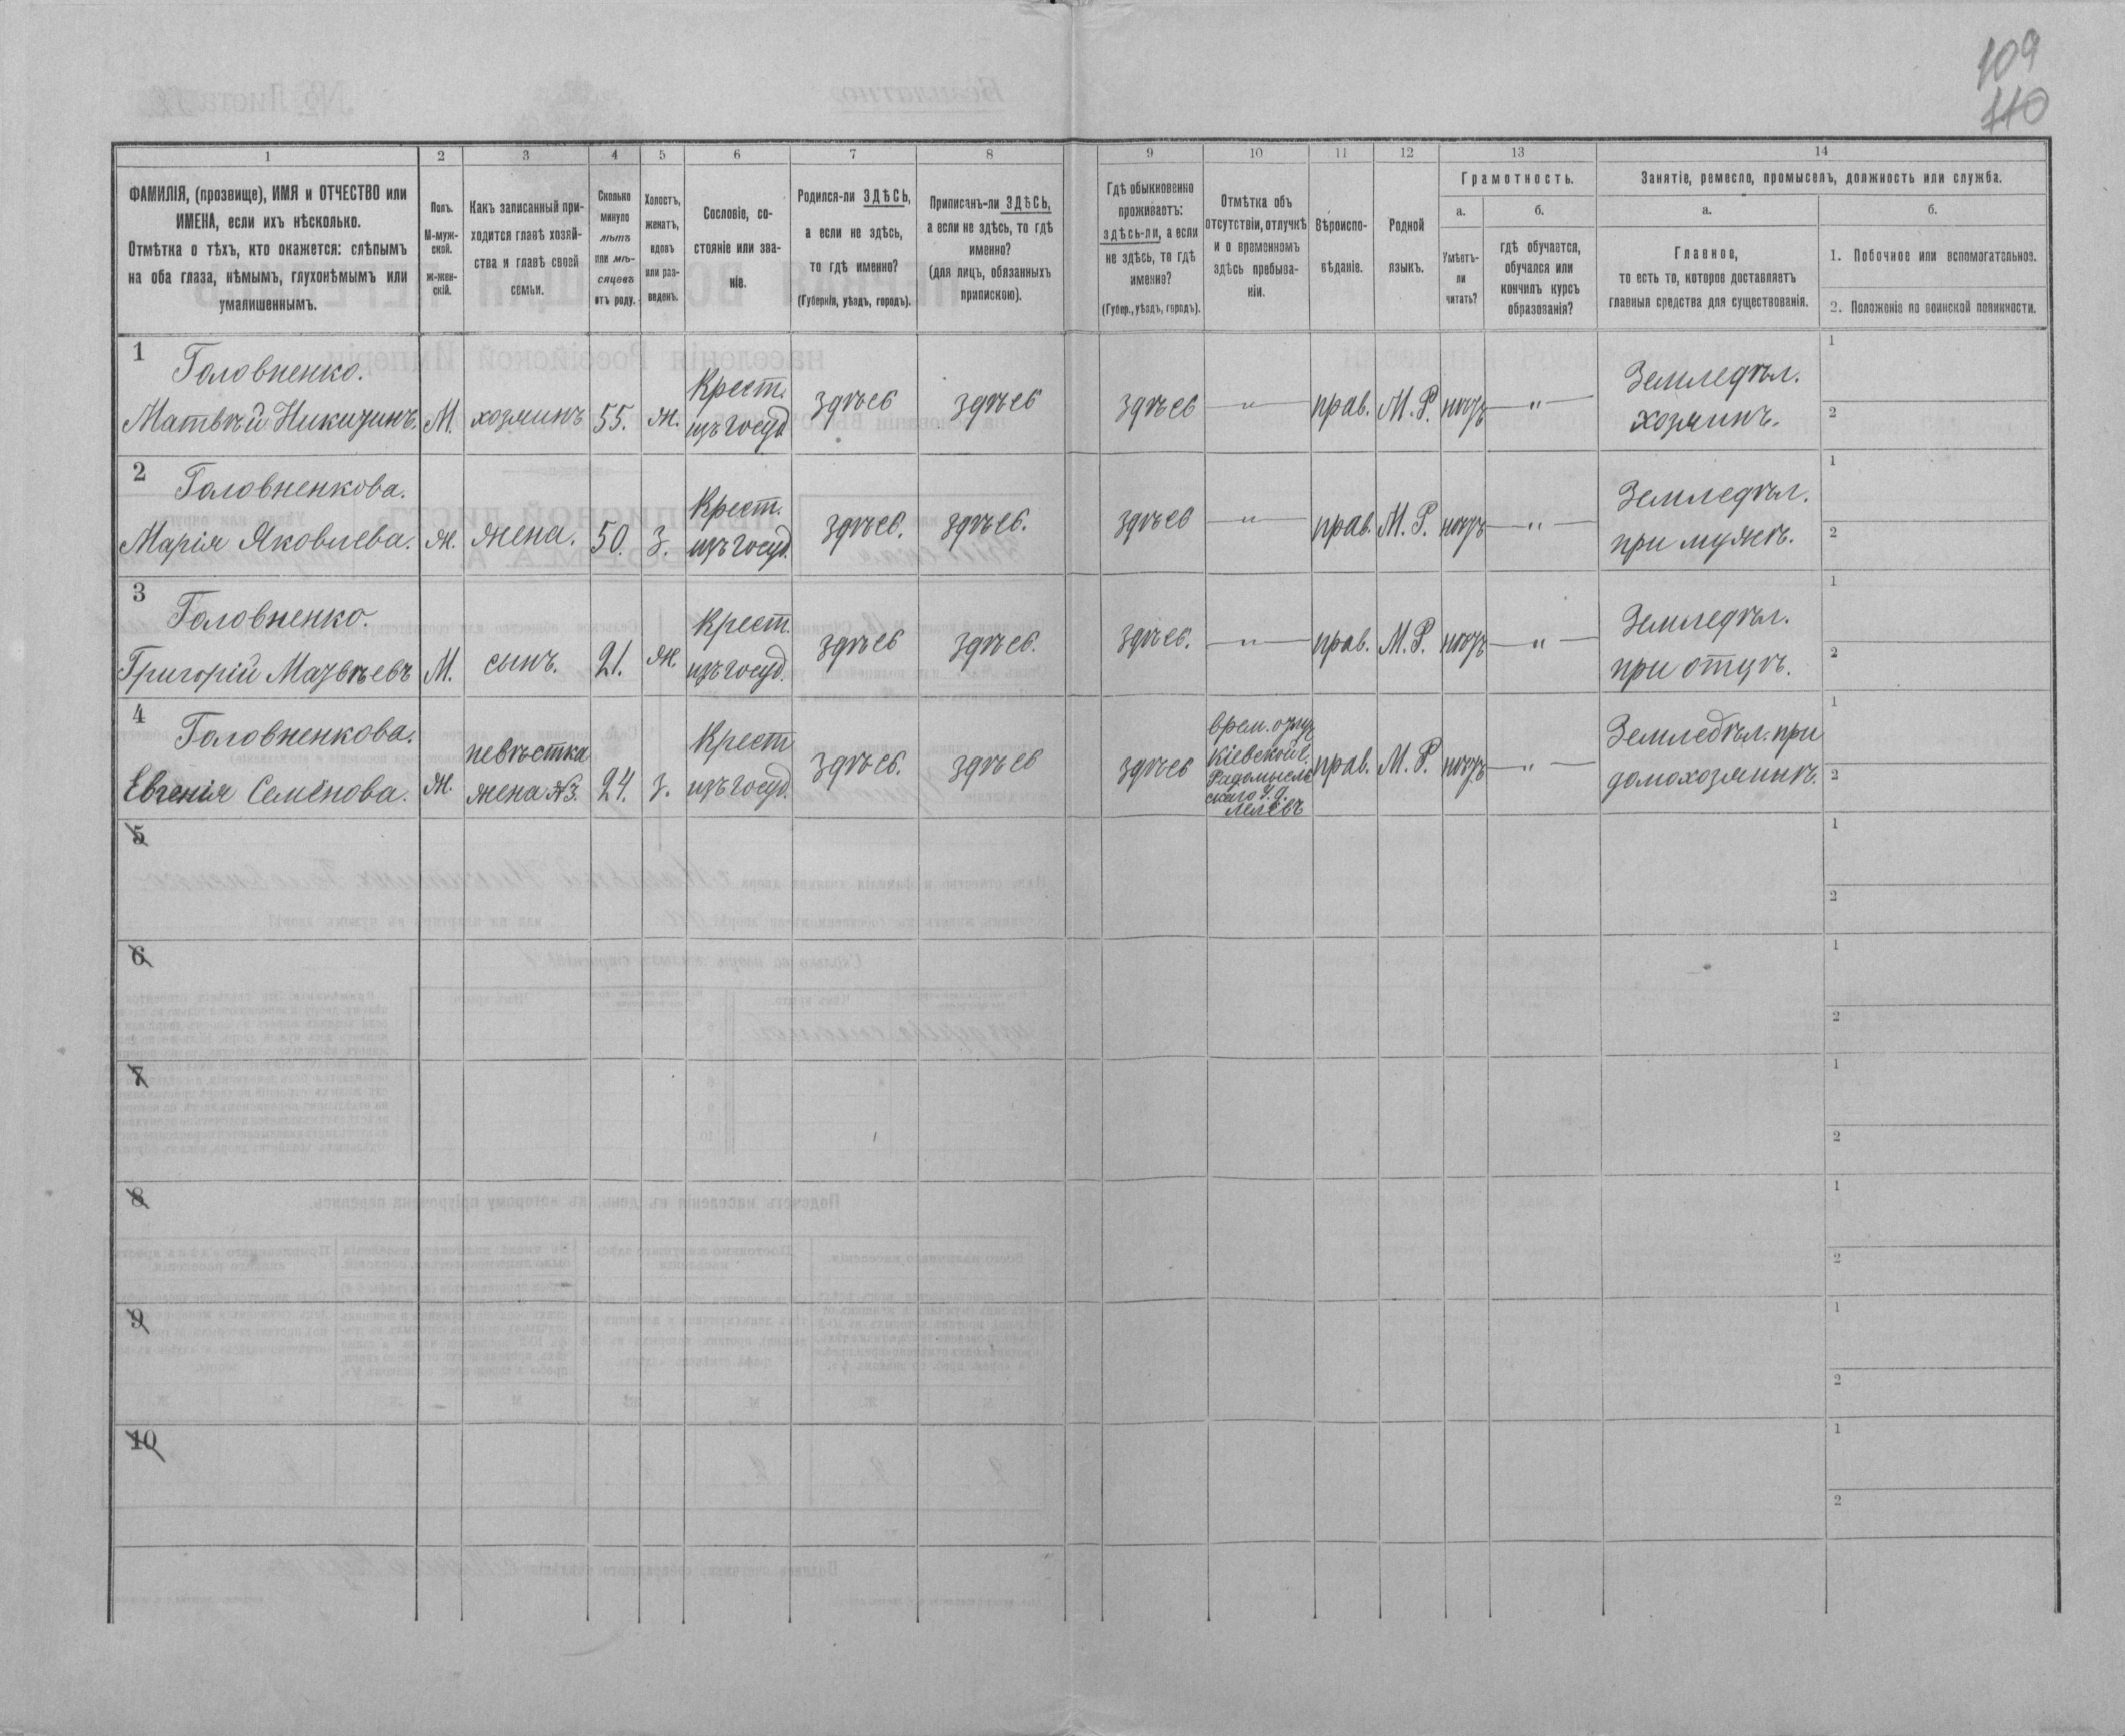 109
110
1
2
3
4
5
6
7
8
9
10
11
12
13
14
ФАМИЛІЯ, (прозвище), ИМЯ и ОТЧЕСТВО или
ИМЕНА, если ихъ нѣсколько.
Отмѣтка о тѣхъ, кто окажется: слѣпымъ
на оба глаза, нѣмымъ, глухонѣмымъ или
умалишеннымъ.
Полъ.
М-муж-
ской.
Ж-жен-
скій.
Какъ записанный при-
ходится главѣ хозяй-
ства и главѣ своей
семьи.
Сколько
минуло
лѣтъ
или мѣ-
сяцевъ
отъ роду.
Холостъ,
женатъ,
вдовъ
или раз-
веденъ.
Сословіе, со-
стояніе или зва-
ніе.
Родился-ли ЗДѢСЬ,
а если не здѣсь,
то гдѣ именно?
(Губернія, уѣздъ, городъ).
Приписанъ-ли ЗДѢСЬ,
а если не здѣсь, то гдѣ
именно?
(для лицъ, обязанныхъ
припискою).
Гдѣ обыкновенно
проживаетъ:
здѣсь-ли, а если
не здѣсь, то гдѣ
именно?
(Губер., уѣздъ, городъ).
Отмѣтка объ
отсутствіи, отлучкѣ
и о временномъ
здѣсь пребыва-
ніи.
Вѣроиспо-
вѣданіе.
Родной
языкъ.
Грамотность.
а.
Умѣетъ-
ли
читать?
б.
гдѣ обучается,
обучался или
кончилъ курсъ
образованія?
Занятіе, ремесло, промыселъ, должность или служба.
а.
Главное,
то есть то, которое доставляетъ
главныя средства для существованія.
б.
1. Побочное или вспомогательное.
2. Положеніе по воинской повинности.
1
Головненко.
Матвѣй Никитинъ.
М.
хозяинъ
55.
ж.
Крест.
изъ госуд.
здѣсь
здѣсь
здѣсь
— " —
прав.
М. Р.
— " —
Земледѣл.
хозяинъ.
1
2
2
Головненкова.
Марія Яковлева.
ж.
жена.
50.
з.
Крест.
изъ госуд.
здѣсь.
здѣсь.
здѣсь
— " —
прав.
М. Р.
— " —
Земледѣл.
при мужѣ.
1
2
3
Головненко.
Григорій Матвѣевъ
М.
сынъ.
21.
ж
Крест.
изъ госуд.
здѣсь
здѣсь.
здѣсь.
— " —
прав.
М. Р.
— " —
Земледѣл.
при отцѣ.
1
2
4
Головненкова.
Евгенія Семёнова.
ж.
невѣстка
жена №3.
24.
з.
Крест
изъ госуд.
здѣсь.
здѣсь
здѣсь
врем.
Кіевской г.
Радомысль
скаго у. д.
прав.
М. Р.
— " —
Земледѣл. при
домохозяинѣ.
1
2
5
1
2
6
1
2
7
1
2
8
1
2
9
1
2
10
1
2